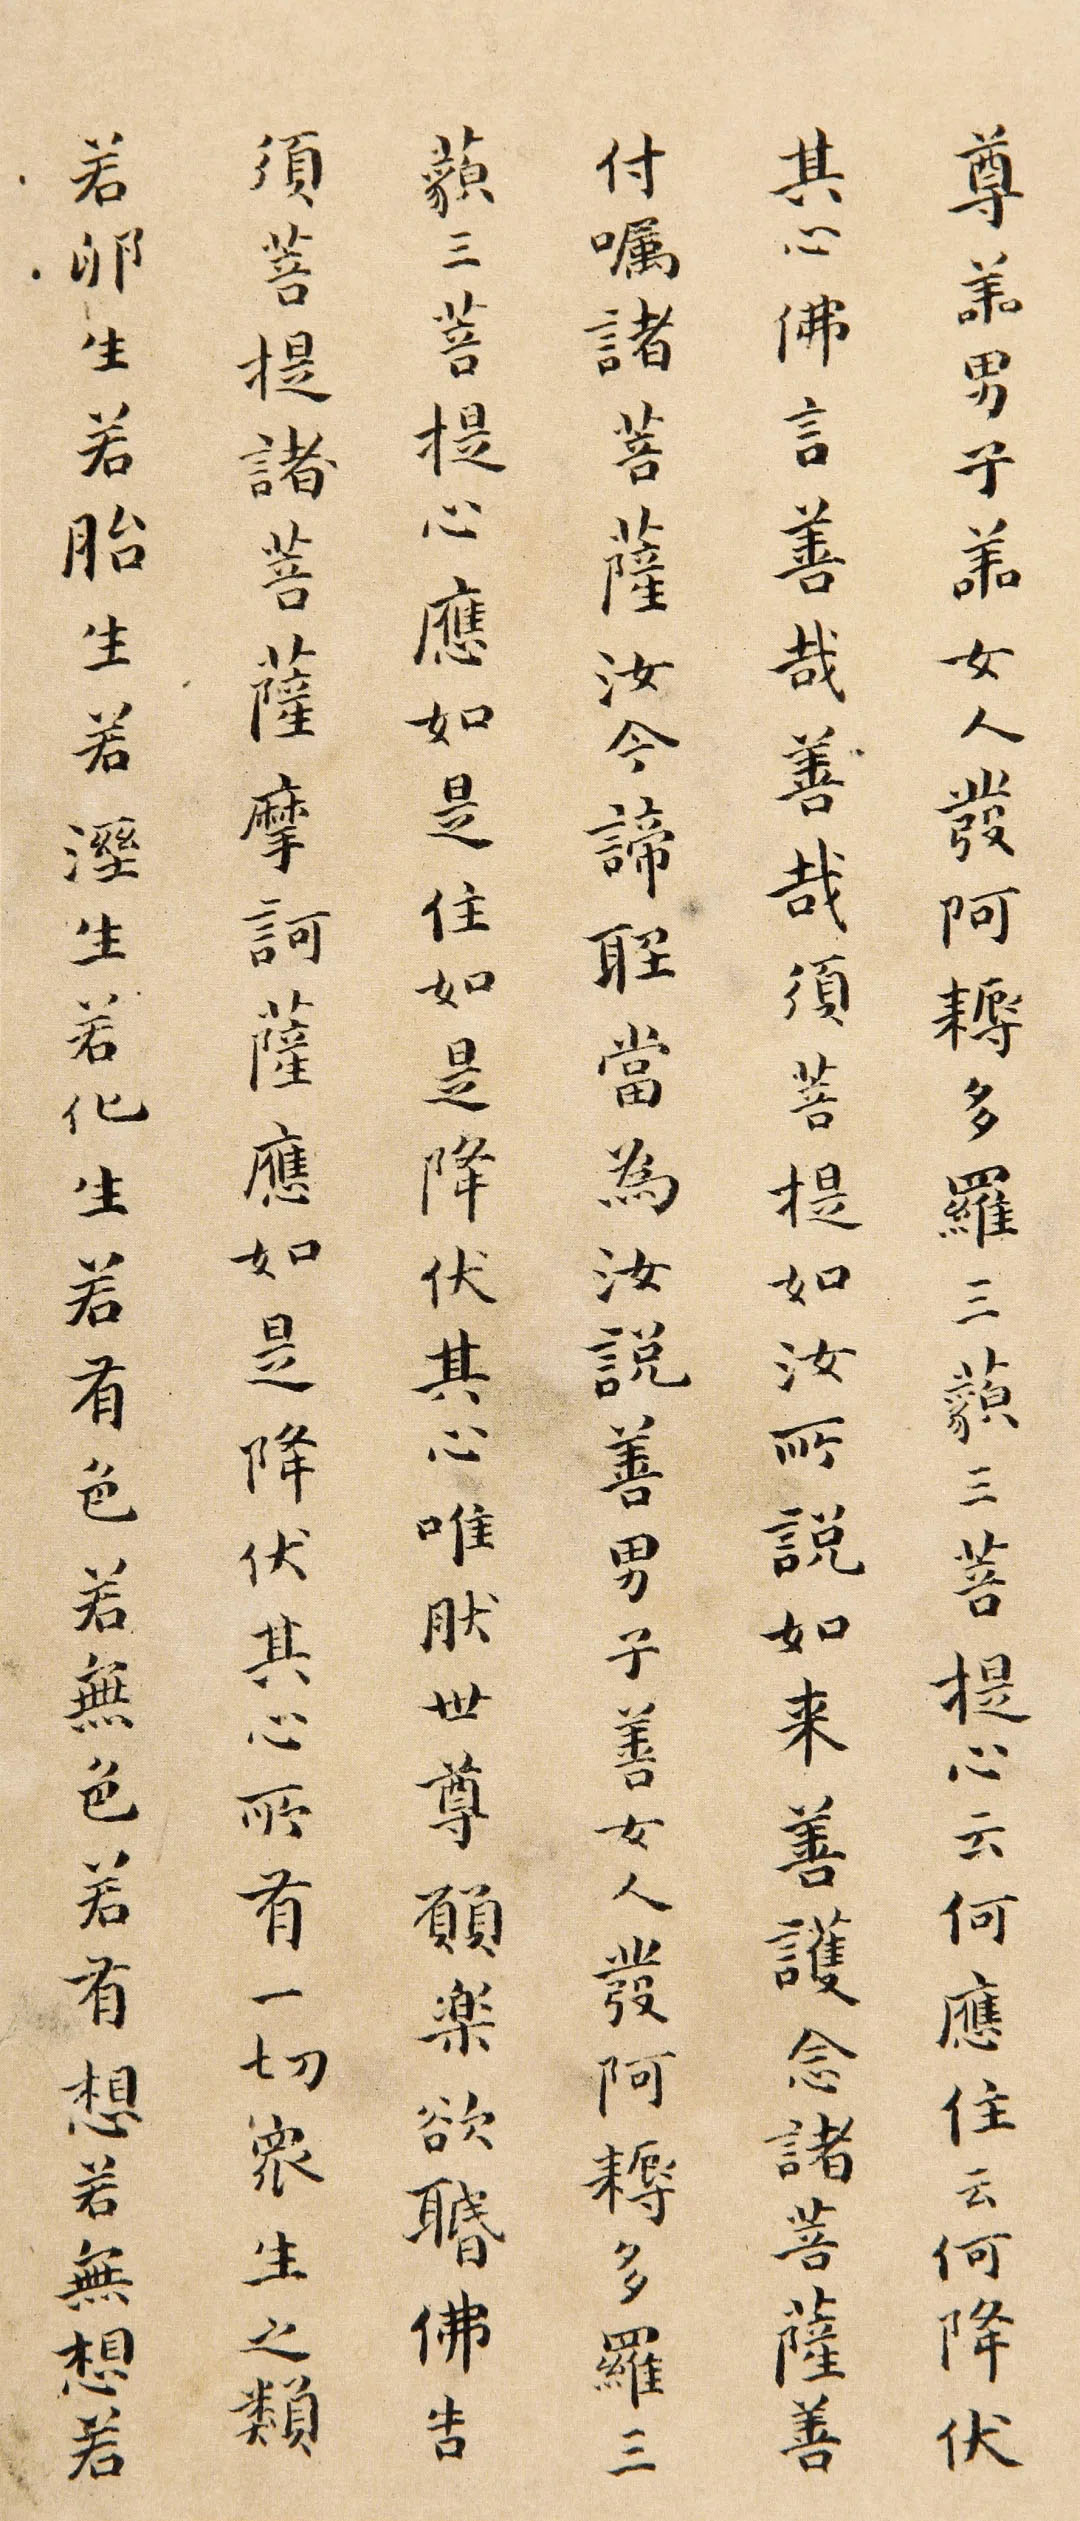 尊善男子善女人發阿耨多羅三藐三菩提心云何應住云何降伏
其心佛言善哉善哉須菩提如汝所説如来善護念諸菩薩善
付嘱諸菩薩汝今諦聽當為汝説善男子善女人發阿耨多羅三
藐三菩提心應如是住如是降伏其心唯然世尊願楽欲聞佛告
須菩提諸菩薩摩訶薩應如是降伏其心所有一切衆生之類
若卵生若胎生若溼生若化生若有色若無色若有想若無想若